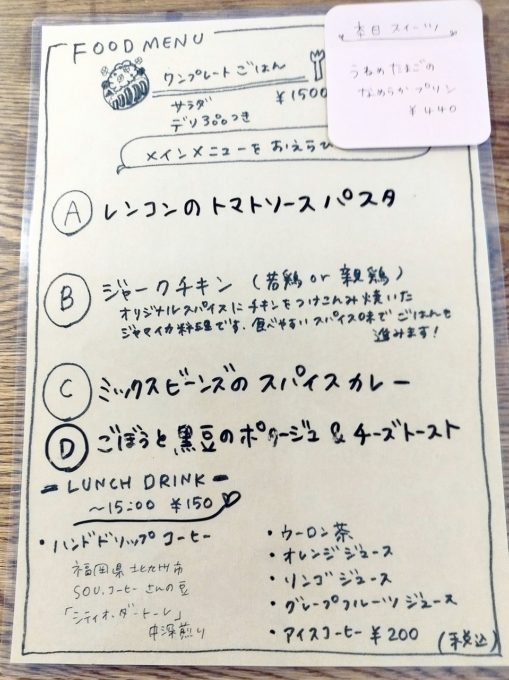 FOOD MENU
ワンプレートごはん
サラダ
デリ3つつき
¥1500
本日スイーツ
うねめたまごの
なめらかプリン
¥440
メインメニューをおえらび
A レンコンのトマトソースパスタ
B ジャークチキン (若鶏 or 親鶏)
オリジナルスパイスにチキンをつけこんみ焼いた
ジャマイカ料理です。食べやすいスパイス味でごはんも
進みます!
C ミックスビーンズのスパイスカレー
D ごぼうと黒豆のポタージュ & チーズトースト
LUNCH DRINK
～15:00 ¥150
・ハンドドリップコーヒー
福岡県北九州市
SOU.コーヒーさんの豆
「シティオ・ダ・トーレ」
中深煎り
・ウーロン茶
・オレンジジュース
・リンゴジュース
・グレープフルーツジュース
・アイスコーヒー ¥200
(税込)